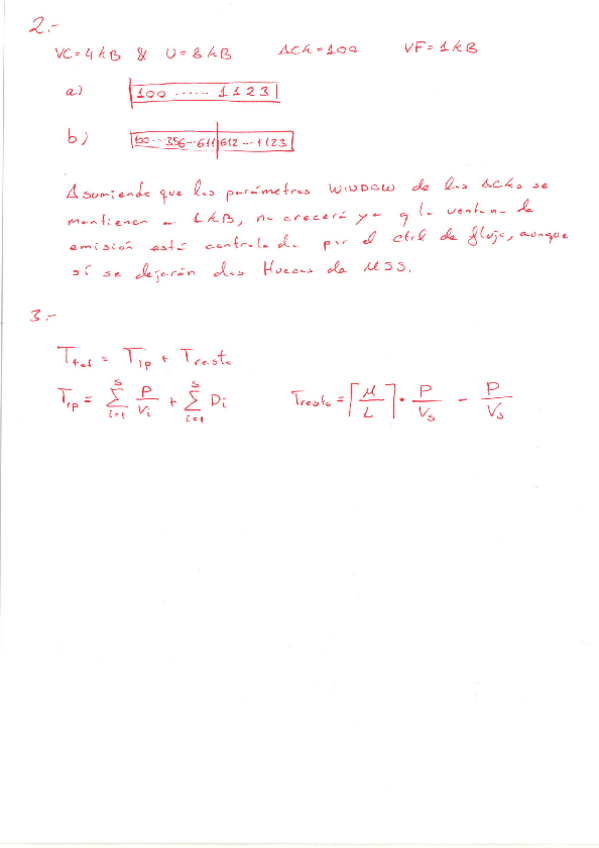 2.-
VC=4kB & U=8kB ACK=100 VF=1kB
a) 100 ...... 1123
b) 100...356...611 612...1123
Asumiendo que los parámetros WINDOW de los ACKs se
mantienen a 1kB, no crecerá ya q la ventana de
emisión está controlada por el ctrl de flujo, aunque
sí se dejarán dos Huecos de MSS.
3.-
T_tot = T_1p + T_resto
T_1p = Σ_{i=1}^{s} P/V_i + Σ_{i=1}^{s} D_i T_resto = ⌈M/L⌉ · P/V_s - P/V_s